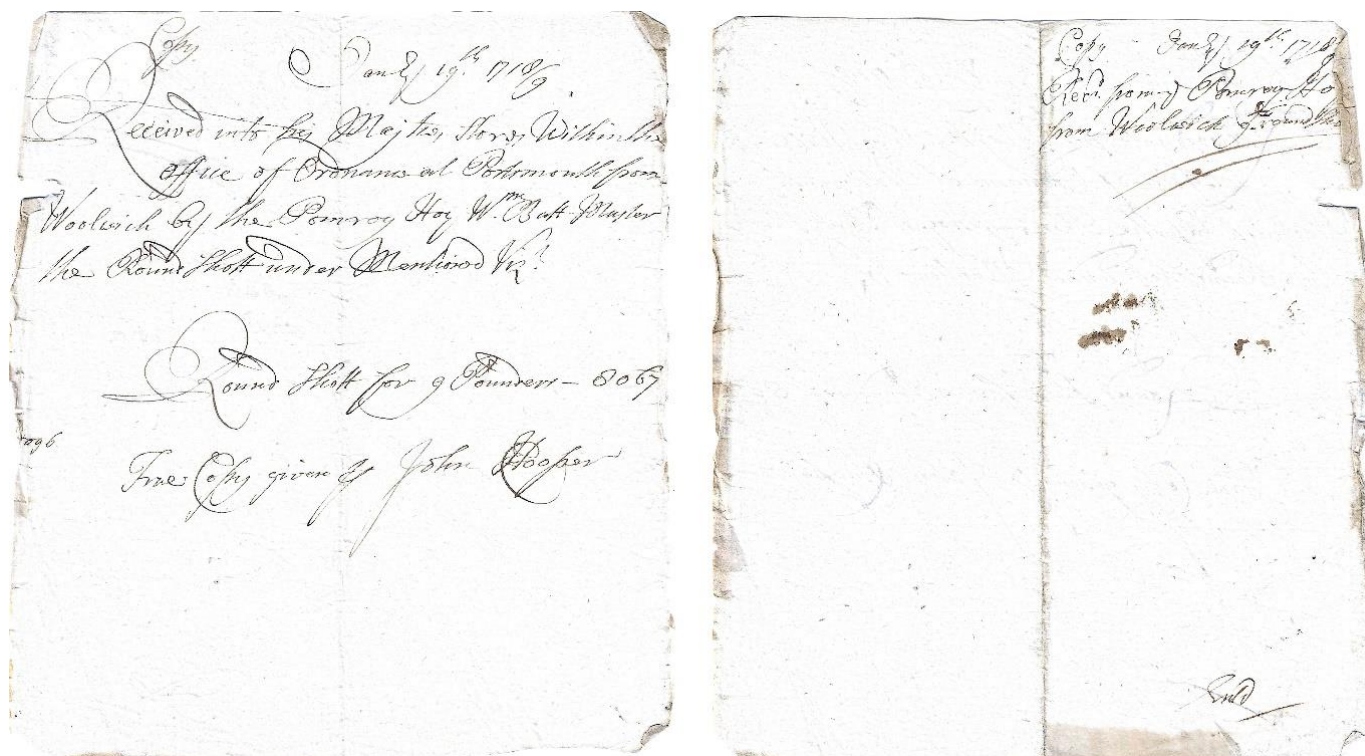 Copy
Janry 19th 1718/9
Received into his Majties Stores Within the
office of Ordnance at Portsmouth from
Woolwich by the Pomroy Hoy Wm Batt Master
the Round Shott under Mentioned Vizt
Round Shott for 9 Pounders – 8067
1096
True Copy given by John Hooper
Copy - Janry 19th 1718/9
Recd from ye Pomroy Ho
from Woolwich 9 pr round
Entd